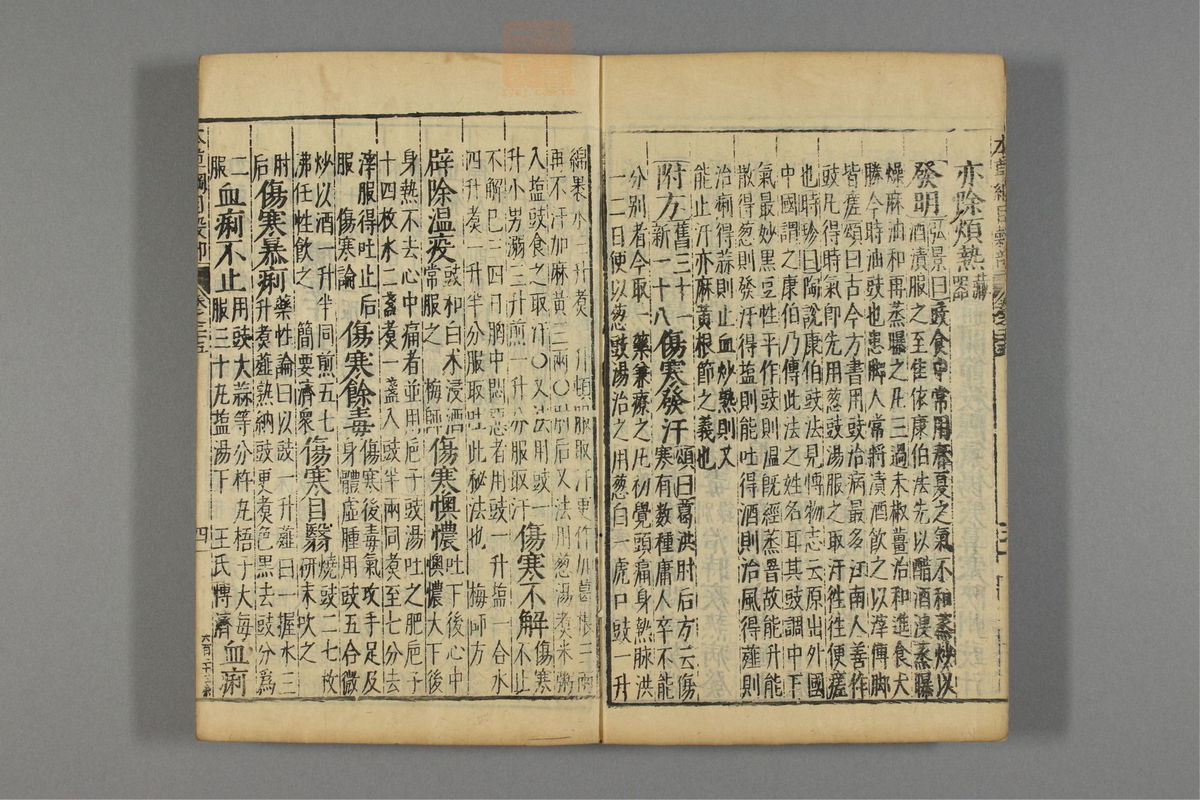 亦除煩熱藏器
發明弘景曰豉食中常用春夏之氣不和蒸炒以
酒漬服之至佳依康伯法先以醋酒溲蒸曝
燥麻油和再蒸曝之凡三過末椒薑治和進食大
勝今時油豉也患脚人常將漬酒飲之以滓傅脚
皆瘥頌曰古今方書用豉治病最多江南人善作
豉凡得時氣即先用葱豉湯服之取汗往往便瘥
也時珍曰陶說康伯豉法見愽物志云原出外國
中國謂之康伯乃傳此法之姓名耳其豉調中下
氣最妙黑豆性平作豉則温既經蒸罯故能升能
散得葱則發汗得塩則能吐得酒則治風得薤則
治痢得蒜則止血炒熟則又
能止汗亦麻黃根節之義也
附方舊三十一新一十八傷寒發汗頌曰葛洪肘后方云傷
寒有數種庸人卒不能
分別者今取一藥兼療之凡初覺頭痛身熱脉洪
一二日便以葱豉湯治之用葱白一虎口豉一升
綿裹水三升煮一升頓服取汗更作加葛根三兩
再不汗加麻黃三兩〇肘后又法用葱湯煮米粥
入塩豉食之取汗〇又法用豉一
升小男溺三升煎一升分服取汗傷寒不解傷寒
不止
不解已三四日胸中悶惡者用豉一升塩一合水
四升煮一升半分服取吐此秘法也 梅師方
辟除温疫豉和白术浸酒常服之 梅師傷寒懊憹吐下後心中
懊憹大下後
身熱不去心中痛者並用巵子豉湯吐之肥巵子
十四枚水二盞煮一盞入豉半兩同煮至七分去
滓服得吐止後服 傷寒論傷寒餘毒傷寒後毒氣攻手足及
身體虛腫用豉五合微
炒以酒一升半同煎五七
沸任性飲之 簡要濟衆傷寒目翳燒豉二七枚
研末吹之
肘后傷寒暴痢藥性論曰以豉一升薤白一握水三
升煮薤熟納豉更煮色黑去豉分爲
二服血痢不止用豉大蒜等分杵丸梧子大每
服三十丸塩湯下 王氏愽濟血痢